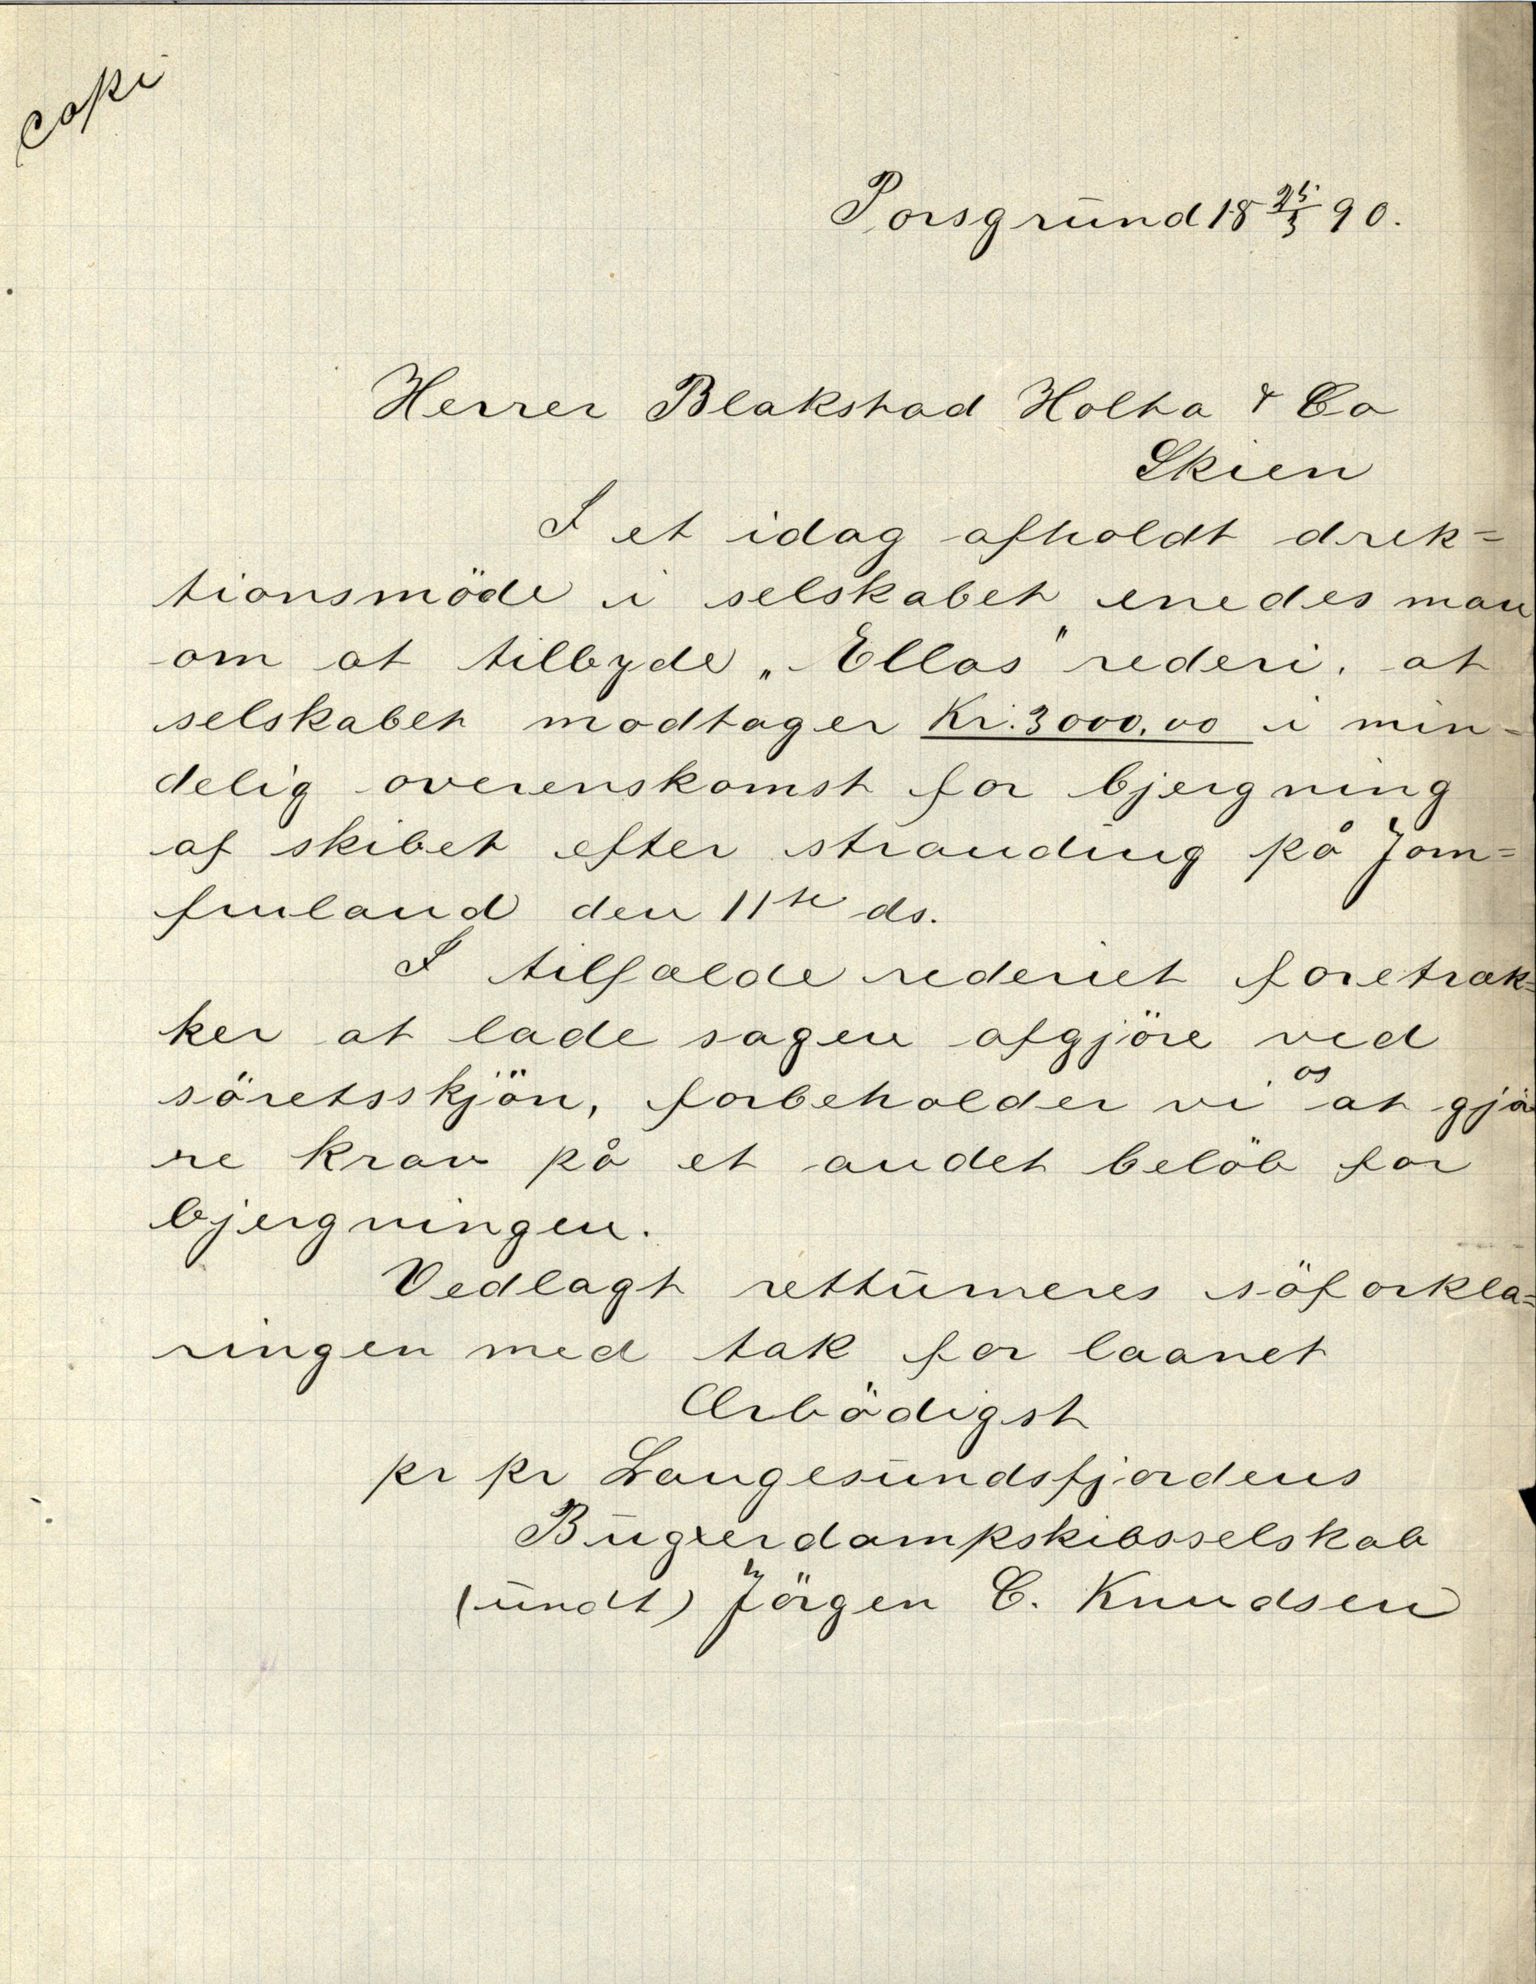 copi
Porsgrund 18 25/3 90.
Herrer Blakstad Holta & Co
Skien
I et idag afholdt drek=
tionsmöde i selskabet enedes man
om at tilbyde „Ellas" rederi, at
selskabet modtager Kr. 3000,00 i min=
delig overenskomst for bjergning
af skibet efter stranding på Jom=
fruland den 11te ds.
I tilfælde rederiet foretræk=
ker at lade sagen afgjöre ved
söretsskjön, forbeholder vi os at gjö
re krav på et andet belöb for
bjergningen.
Vedlagt retturneres söforkla=
ringen med tak for laanet
Ærbödigst
pr pr Langesundsfjordens
Bugserdampskibsselskab
(undt) Jörgen C. Knudsen